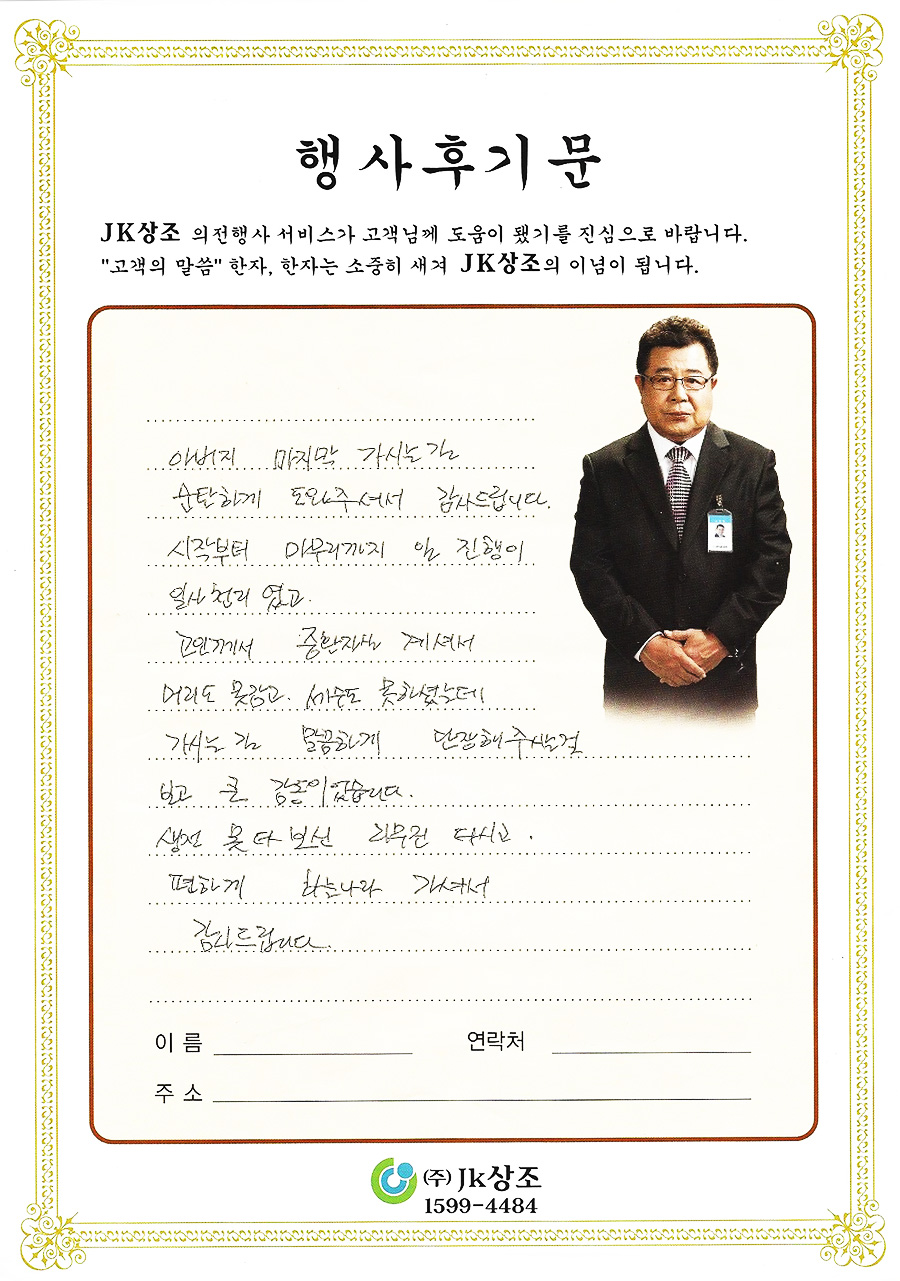 행사후기문
JK상조 의전행사 서비스가 고객님께 도움이 됐기를 진심으로 바랍니다.
"고객의 말씀" 한자, 한자는 소중히 새겨 JK상조의 이념이 됩니다.
아버지 마지막 가시는 길
순탄하게 도와주셔서 감사드립니다.
시작부터 마무리까지 일 진행이
일사천리 였고.
고인께서 중환자실 계셔서
머리도 못감고. 세수도 못하셨는데
가시는 길 말끔하게 단장해주시는걸
보고 큰 감동이었습니다.
생전 못다보신 다시고.
편하게 하늘나라 가셔서
감사드립니다.
이 름
연락처
주 소
(주) Jk상조
1599-4484